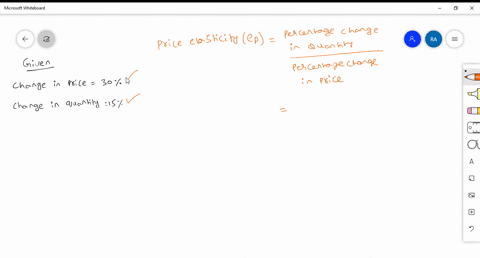 Microsoft Whiteboard
RA
Price elasticity (ep) = Percentage change
in Quantity
Percentage change
in Price
Given
Change in Price = 30%
Change in Quantity = 15%
=